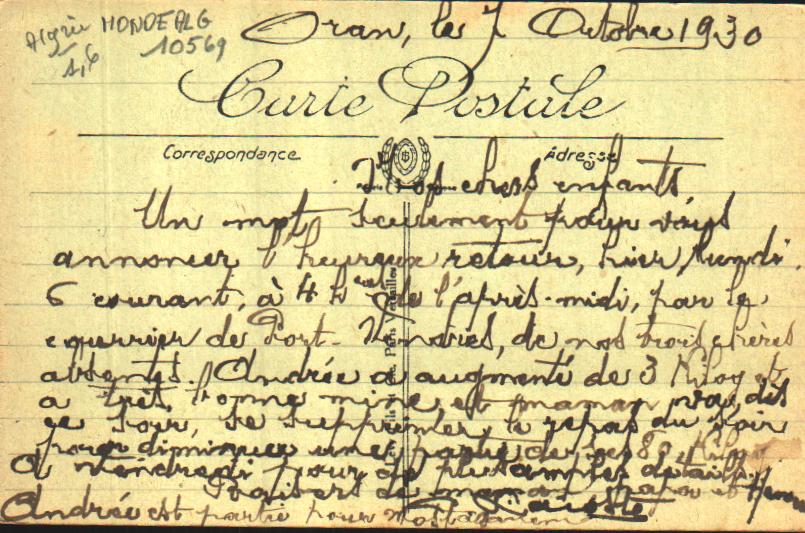 Algérie MONDEALG
10569
1,6
Oran, le 7 Octobre 1930
Carte Postale
Correspondance
Adresse
Mes chers enfants
Un mot seulement pour vous
annoncer l'heureux retour, hier, lundi
6 courant, à 4 h de l'après-midi, par le
courrier de Port-Vendres, de nos trois chères
absentes. Andrée a augmenté de 3 Kilog et
a très bonne mine et maman va, dès
ce soir, se supprimer le repas du soir
pour diminuer une partie de ses 80 Kilog
A vendredi pour de plus amples détails.
Baisers de maman papa et
Andrée est partie pour Mostaganem